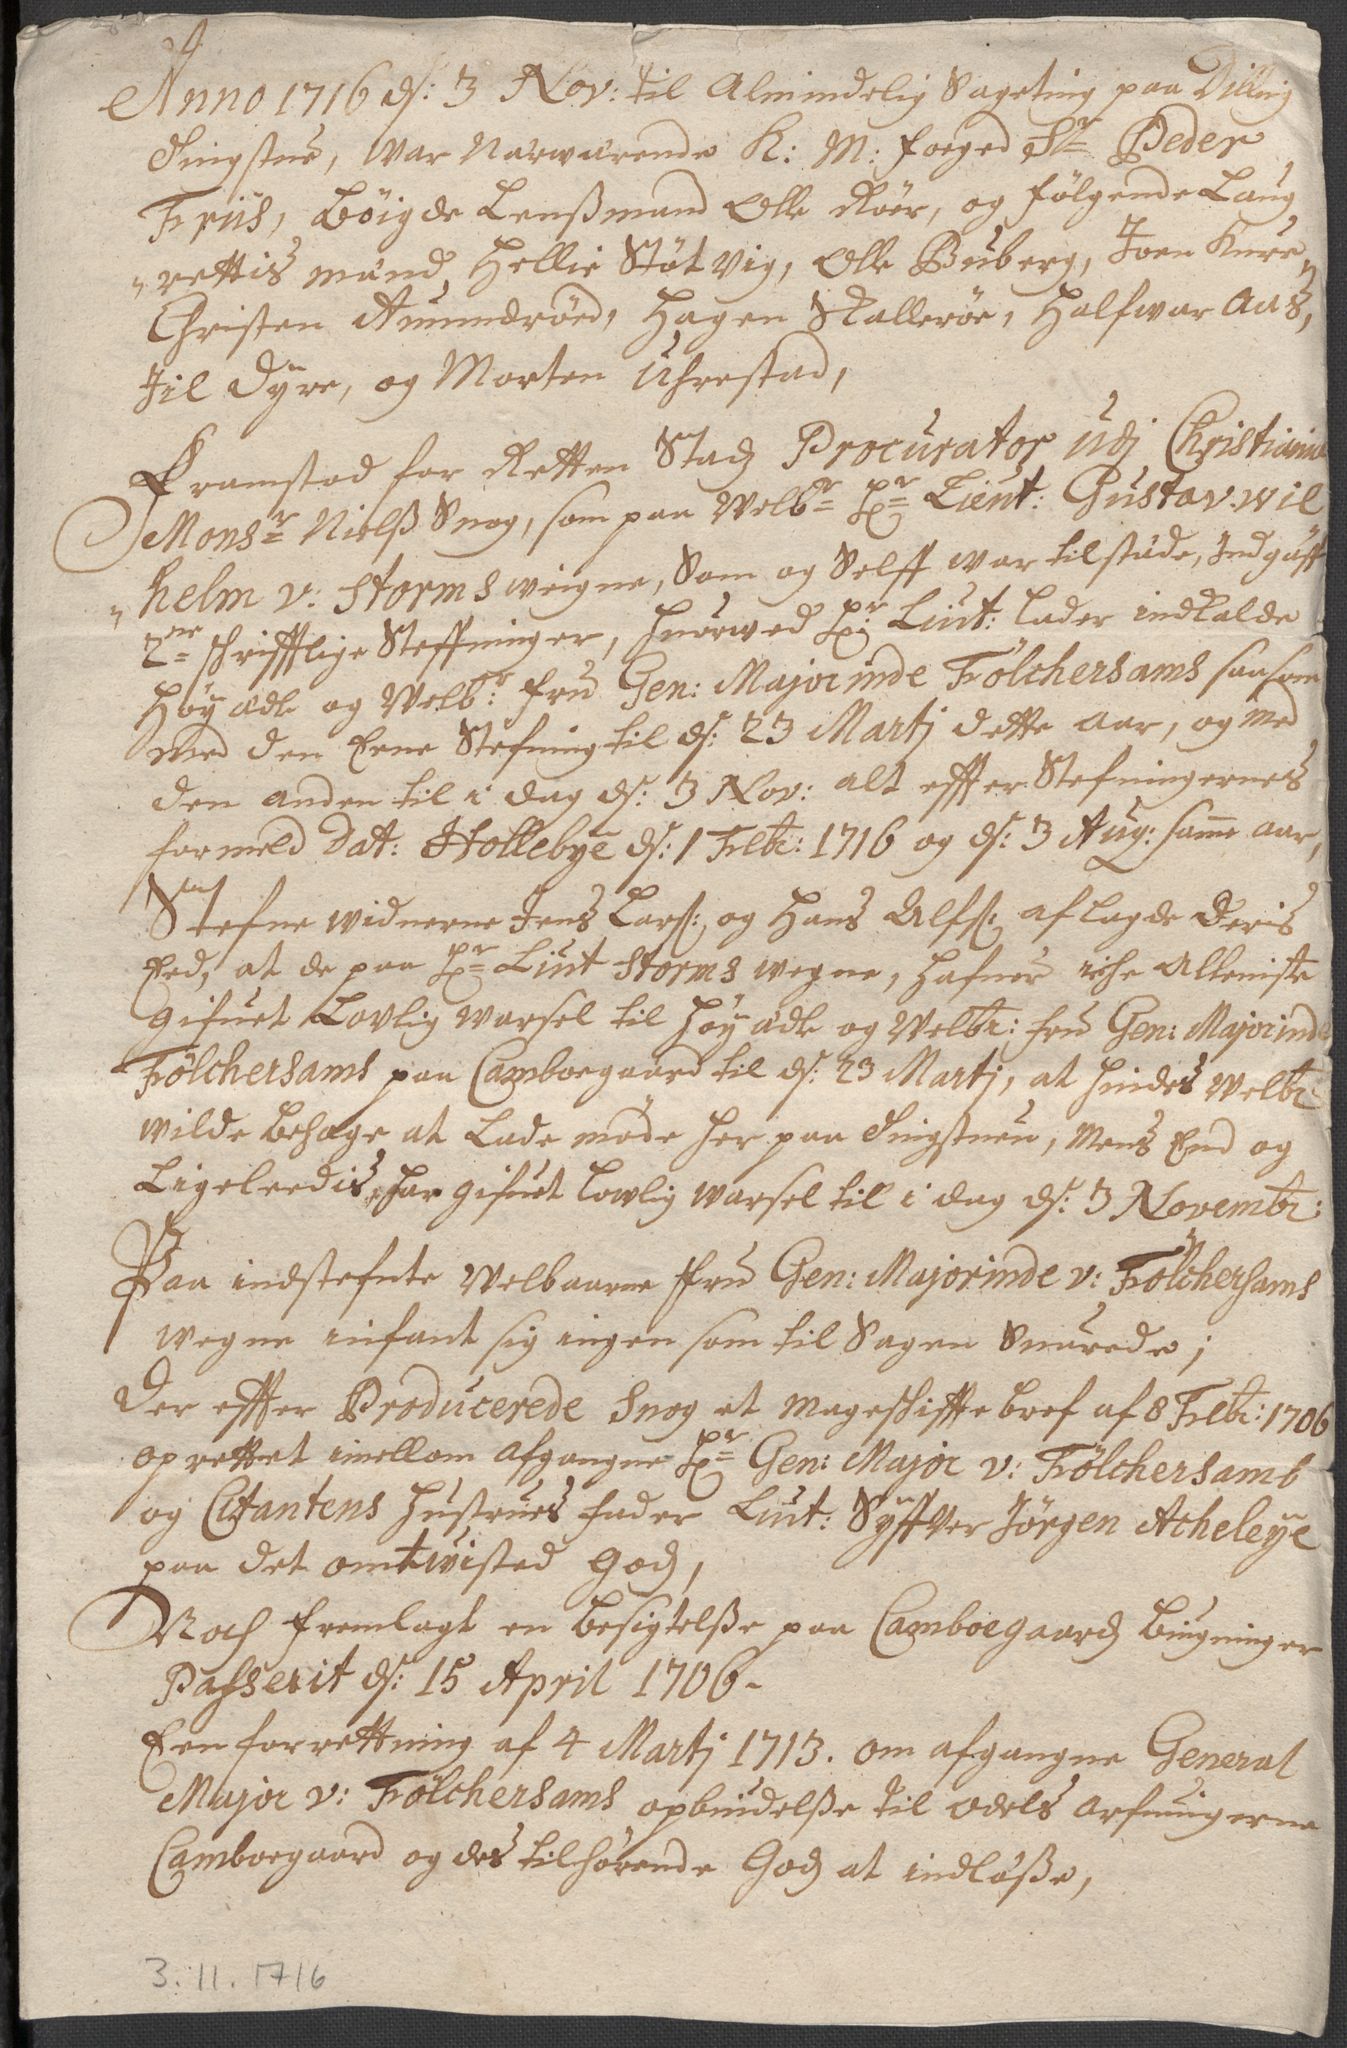 Anno 1716 ds: 3 Nov: til Almindelig Sageting paa Dilling
Tingstue, war Nærwærende K: M: foeged Sr Peder
Friis, bøigde Lenßmand Olle Røer, og følgende Laug
rettis mænd, Hellie Støtvig, Olle Buberg, Joen Kure
Christen Amundrød, Hagen Skallerøe, Halfwar Aas,
Jil Dyre, og Morten Uhrestad,
Fremstod for Retten Stadz Procurator udj Christiania
Monsr Nielß Snog, som paa Welbr Hr Lieut: Gustav Wil
helm v: Storms weigne, Som og Self war tilstæde, Indgaff
2de schrifftlige Steffninger, huorwed Hr Liut: lader indkalde
Høyædle og Welbr: fru Gen: Majorinde Fölchersams saasom
med den Eene Stefning til ds: 23 Martj dette aar, og med
den anden til i dag ds: 3 Nov: alt effter Stefningernes
formeld Dat: Hollebye ds: 1 Febr: 1716 og ds: 3 Aug: samme aar,
Stefne widnerne Jens Lars: og Hans Alfs: aflagde deris
Eed, at de paa Hr Liut Storms wegne, hafuer iche alleniste
gifuet Lovlig warsel til Høyædle og Welbr: fru Gen: Majorinde
Fölchersams paa Camboegaard til ds: 23 Martj, at hindes Welbr
wilde behage at Lade møde her paa Tingstuen, Mens End og
Ligeleedis har gifuet lowlig warsel til i dag ds: 3 Novembr:
Paa indstefnte Welbaarne Fru Gen: Majorinde v: Fölchersams
wegne infant sig ingen som til Sagen Suarede;
Der effter Producerede Snog et mageschifftebref af 8 Febr: 1706
oprettet imellom afgangne Hr Gen: Major v: Fölchersamb
og Citantens Hustrues fader Liut: Syffver Jörgen Acheleye
paa det omtwisted Godz,
Noch fremlagt en besigtelße paa Camboegaardz bügninger
Passerit ds: 15 April 1706-
Een forrettning af 4 Martj 1713. om afgangne General
Major v: Fölchersams opbiudelße til odels arfuingerne
Camboegaard og des tilhørende Godz at indløße,
3.11.1716